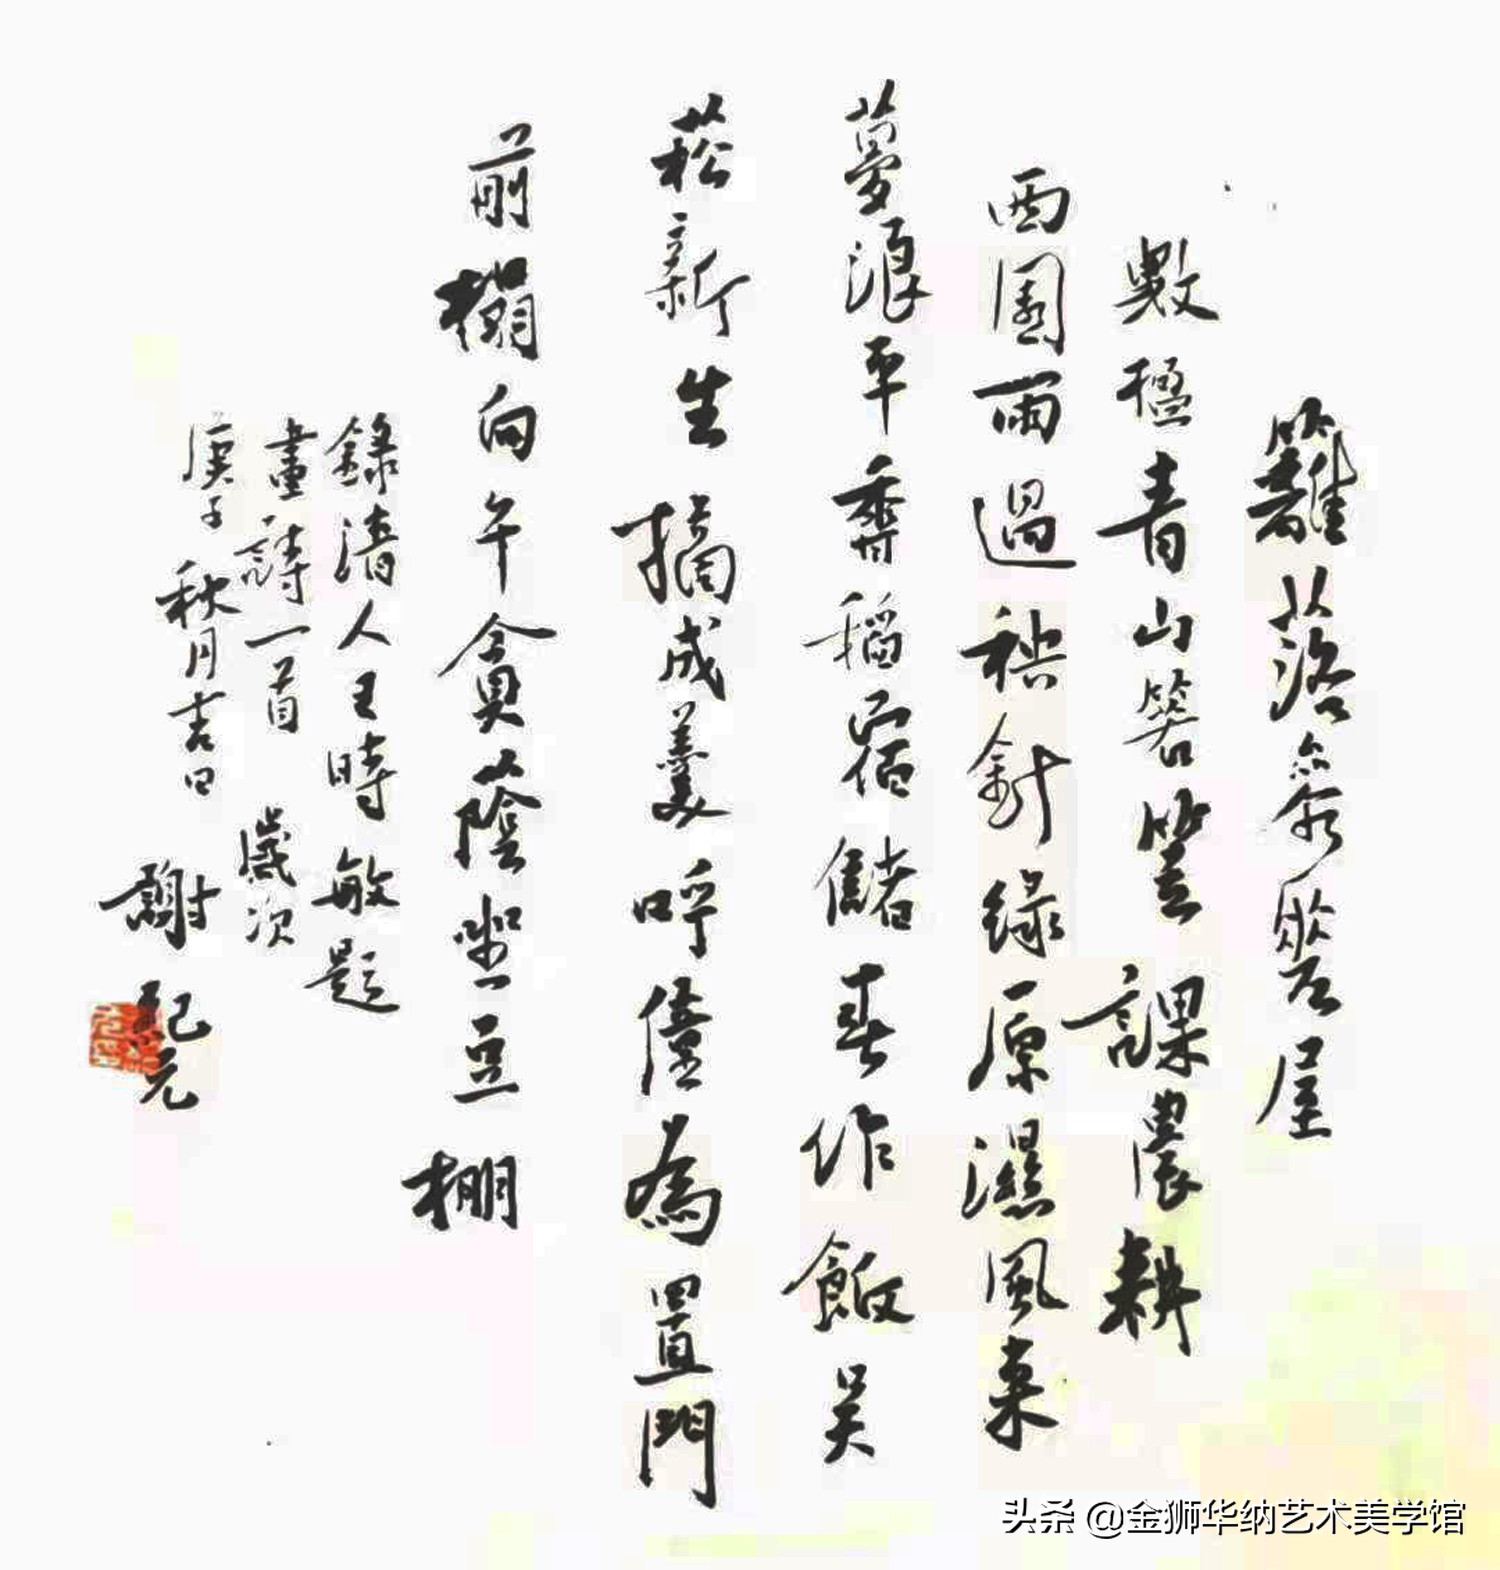 籬落參差屋
數楹青山箬笠課農耕
西園雨過秧針綠原濕風來
蔓浪平香稻宿儲春作飯吳
菘新生摘成羹呼僮為置門
前榻向午貪蔭坐豆棚
錄清人王時敏題
畫詩一首 歲次
庚子秋月吉日
謝紀元
头条 @金狮华纳艺术美学馆